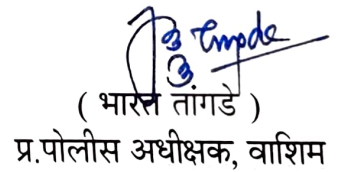 ( भारत तांगडे )
प्र.पोलीस अधीक्षक, वाशिम